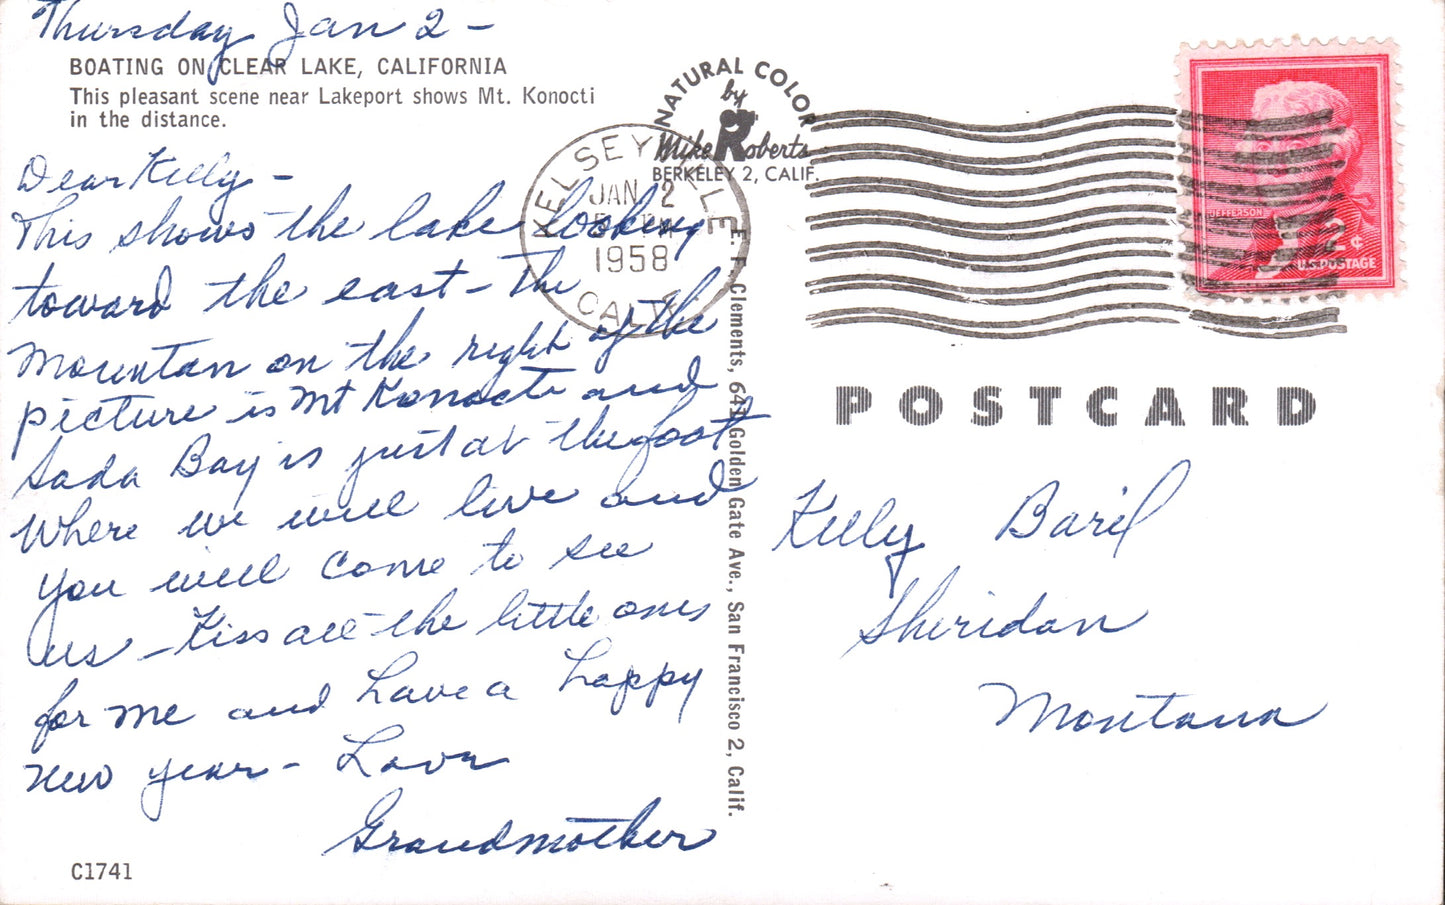 Thursday Jan 2 -
BOATING ON CLEAR LAKE, CALIFORNIA
This pleasant scene near Lakeport shows Mt. Konocti
in the distance.
Dear Kelly -
This shows the lake looking
toward the east - The
Mountan on the right of the
picture is Mt Konocti and
Soda Bay is just at the foot
Where we will live and
you will come to see
us - Kiss all the little ones
for me and have a happy
new year - Love
Grandmother
C1741
NATURAL COLOR
by
Mike Roberts
BERKELEY 2, CALIF.
KELSEYVILLE
JAN 2
PM
1958
CALIF
E. F. Clements, 641 Golden Gate Ave., San Francisco 2, Calif.
JEFFERSON
¢
U.S. POSTAGE
POSTCARD
Kelly Baril
Sheridan
Montana